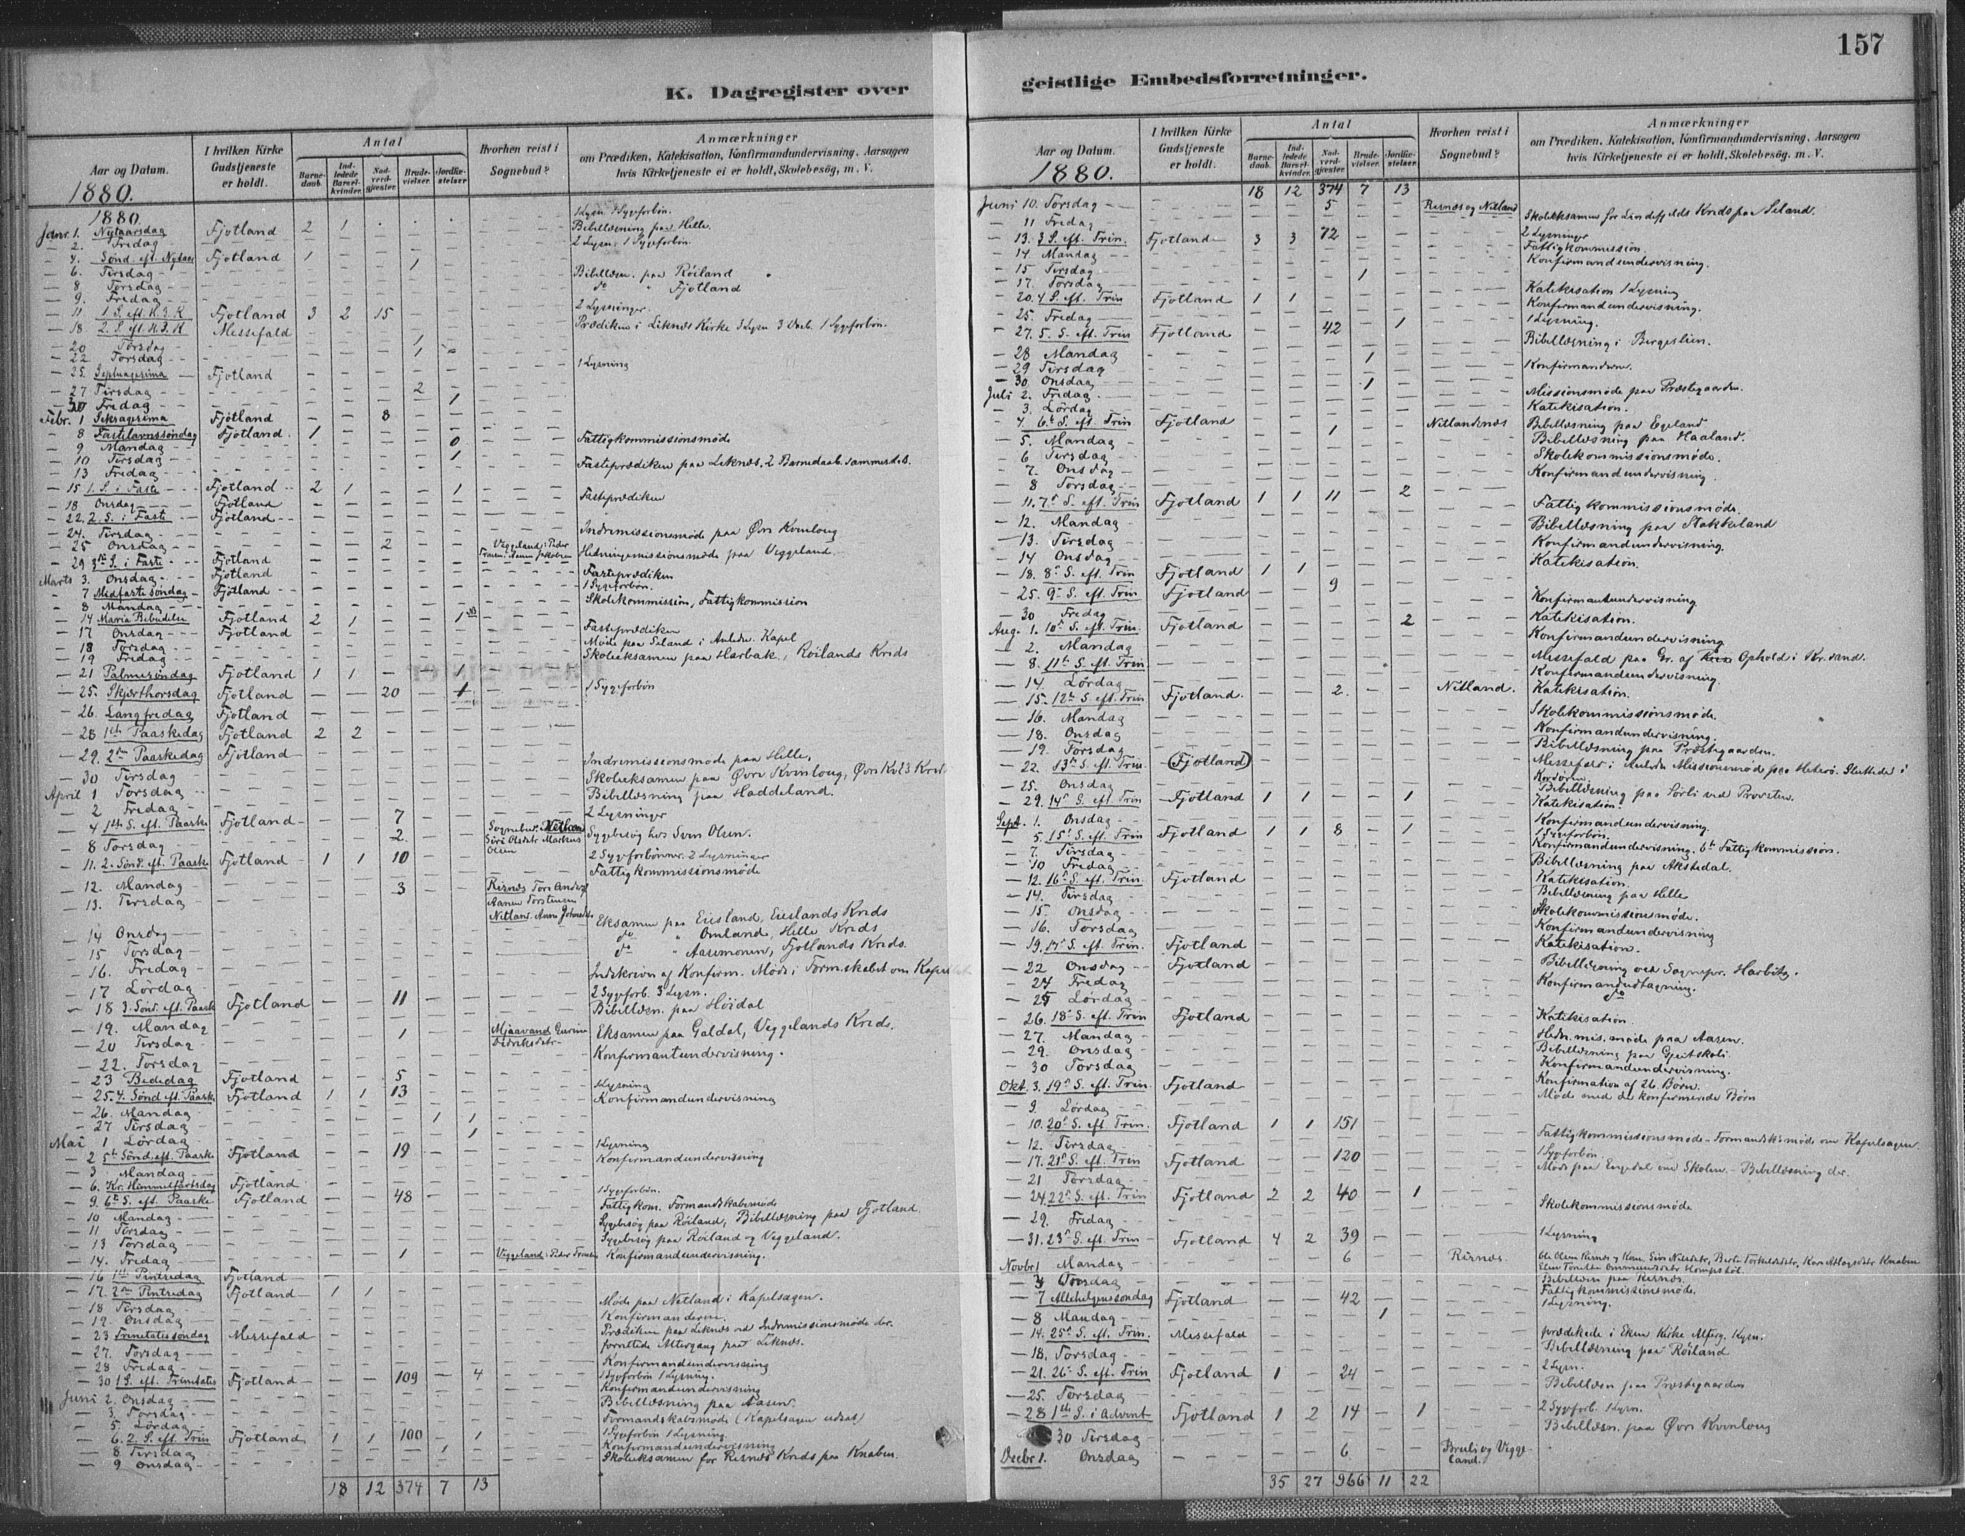 157
K. Dagregister over
geistlige Embedsforretninger.
Aar og Datum.
I hvilken Kirke Gudstjeneste er holdt.
Antal
Barnedaab.
Indledede Barselkvinder.
Nadverdgjester
Brudevielser.
Jordfæstelser
Hvorhen reist i Sognebud?
Anmærkninger
om Prædiken, Katekisation, Konfirmandundervisning, Aarsagen
hvis Kirketjeneste ei er holdt, Skolebesög, m. V.
1880.
1880.
Janr. 1. Nytaarsdag Fjotland 2 1 1 Lysn. 1 Sygeforbön.
— 2. Fredag Bibellæsning paa Helle.
— 4. Sönd. eft. Nytaar Fjotland 1 2 Lysn. 1 Sygeforbön
— 6. Tirsdag 1
— 8 Torsdag Bibellæsn. paa Röiland
— 9. Fredag do " Fjotland
— 11. 1 S. eft. H. 3. K. Fjotland 3 2 15 2 Lysninger.
— 18 2. S. eft. H. 3. K Messefald Prædiken i Liknes Kirke 3 Lysn. 3 Daab. 1 Sygeforbön.
— 20 Torsdag 1
— 22 Torsdag 1
— 25. Septuagesima Fjotland 1 Lysning
— 27 Tirsdag 2
— 30 Fredag 1
Febr. 1 Seksagesima Fjotland 8
— 8 Fastelavnssöndag Fjotland. 1 0
— 9 Mandag Fattigkommissionsmøde
— 10 Torsdag 1
— 13 Fredag Fasteprædiken paa Liknes, 2 Barnedaab sammesteds.
— 15 1. S. i Faste Fjotland 2 1 1
— 18 Onsdag Fjotland Fasteprædiken
— 22. 2. S. i Faste Fjotland
— 24. Tirsdag Indremissionsmøde paa Øvr. Kvinloug
— 25 Onsdag 2 Veggeland: Peder Hedningemissionsmøde paa Veggeland
— 29 3die S. i Faste Fjotland
Marts 3. Onsdag Fjotland Fasteprædiken
— 7 Midfastesöndag Fjotland 1 Sygeforbön.
— 8 Mandag Skolekommission, Fattigkommission
— 14 Maria Bebudelse Fjotland 2 1 1
— 17 Onsdag Fjotland Fasteprædiken
— 18 Torsdag Møde paa Seland i Anledn. Kapel
— 19 Fredag Skoleeksamen paa Harbak, Röilands Kreds
— 21 Palmesöndag Fjotland 1 1
— 25. Skjærthorsdag Fjotland 20 1 1 Sygeforbön
— 26. Langfredag Fjotland
— 28 1ste Paaskedag Fjotland 2 2
— 29. 2den Paaskedag Fjotland
— 30 Tirsdag Indremissionsmøde paa Helle,
April 1 Torsdag Skoleeksamen paa Øvre Kvinloug,
— 2 Fredag Bibellæsning paa Haddeland.
— 4 1ste S. eft. Paaske Fjotland 7 2 Lysninger
— 8 Torsdag 2 Sygebesög hos Sven Olsen.
— 11. 2. Sönd. eft. Paaske Fjotland 1 1 10 2 Sygeforbönner. 2 Lysninger
— 12. Mandag Fattigkommissionsmøde
— 13. Tirsdag 3 Risnes Tore Aanen Torstensen Nitland Anne
— 14 Onsdag Eksamen paa Eiesland, Eieslands Kreds
— 15 Torsdag do " Omland, Helle Kreds
— 16. Fredag do " Aasemoen, Fjotlands Kreds.
— 17 Lördag Indskrivn. af Konfirm. Møde i Formskabet om
— 18 3. Sönd. eft. Paask Fjotland 11 2 Sygeforb. 3 Lysn.
— 19. Mandag Bibellæsn. paa Höidal
— 20 Tirsdag 1 Mjaavand Eksamen paa Galdal, Veggelands Kreds.
— 22. Torsdag Konfirmantundervisning.
— 23 Bededag Fjotland 5
— 25. 4. Sönd eft. Paask. Fjotland 1 1 13 1 Lysning
— 26. Mandag Konfirmandundervisning
— 27 Tirsdag 1 1
Mai 1 Lördag 1
— 2 5te Sönd. eft. Paaske Fjotland 19 1 Lysning
— 3 Mandag Konfirmandundervisning
— 6. Kr. Himmelfartsdag Fjotland
— 9. 6te S. eft. Paaske Fjotland 48 1 Sygeforbön.
— 10 Mandag Fattigkom. Formandskabsmøde
— 11 Torsdag Sygebesög paa Röiland, Bibellæsning paa Fjotland.
— 13 Torsdag Sygebesög paa Röiland og Veggeland.
— 14. Fredag 1 Veggeland: Peder Konfirmandundervisning.
— 16 1ste Pintsedag Fjotland
— 17. 2den Pintsedag Fjotland 1 1
— 18 Tirsdag Møde paa Netland i Kapelsagen.
— 19. Onsdag Konfirmanderne.
— 23 Trinitatissöndag Messefald Prædiken paa Liknes ved Indremissionsmøde der.
— 27. Torsdag forrettede Altergang paa Liknes.
— 28 Fredag Konfirmandundervisning
— 30 1 S. eft. Trinitatis Fjotland 109 4 1 Sygeforbön 1 Lysning.
Juni 2. Onsdag Konfirmandundervisning
— 3. Torsdag Bibellæsning paa Aasen.
— 5. Lördag Formandskabsmøde (Kapelsagen udsat)
— 6. 2. S. eft. Trin Fjotland 1 1 100 1 1 Sygeforbön 1 Lysning.
— 8 Tirsdag 1 Konfirmandundervisning
— 9 Onsdag Skoleeksamen for Risnes Kreds paa Knaben.
18 12 374 7 13
Aar og Datum.
I hvilken Kirke Gudstjeneste er holdt.
Antal
Barnedaab.
Indledede Barselkvinder.
Nadverdgjester
Brudevielser.
Jordfæstelser
Hvorhen reist i Sognebud?
Anmærkninger
om Prædiken, Katekisation, Konfirmandundervisning, Aarsagen
hvis Kirketjeneste ei er holdt, Skolebesög, m. V.
1880.
18 12 374 7 13
Juni 10. Torsdag 5 Risnes og Nitland
— 11 Fredag Skoleeksamen for Lindefjelds Kreds paa Seland.
— 13. 3 S. eft. Trin. Fjotland 3 3 72 2 Lysninger
— 14. Mandag Fattigkommission.
— 15 Tirsdag Konfirmandundervisning.
— 17. Torsdag 1
— 20. 4 S. eft. Trin Fjotland 1 1 Katekisation 1 Lysning
— 25. Fredag Konfirmandundervisning.
— 27. 5. S. eft. Trin Fjotland 42 1 1 Lysning.
— 28 Mandag Bibellæsning i Bergeslien.
— 29 Tirsdag 1
— 30. Onsdag Konfirmanderne.
Juli 2. Fredag 1
— 3. Lördag Missionsmøde paa Præstegaarden.
— 4. 6te S. eft. Trin Fjotland Katekisation.
— 5. Mandag 1 Nitlandsnes Bibellæsning paa Egeland.
— 6 Tirsdag Bibellæsning paa Haaland.
— 7. Onsdag Skolekommissionsmøde.
— 8 Torsdag Konfirmandundervisning
— 11. 7de S. eft. Trin Fjotland 1 1 11 2
— 12. Mandag Fattigkommissionsmøde.
— 13. Tirsdag Bibellæsning paa Stakkeland
— 14 Onsdag Konfirmandundervisning.
— 18. 8de S. eft. Trin Fjotland 1 1 Katekisation.
— 25. 9de S. eft. Trin Fjotland 9
— 30 Fredag Konfirmantundervisning
Aug. 1. 10de S. eft. Trin. Fjotland 2 Katekisation.
— 2. Mandag Konfirmandundervisning
— 8. 11te S. eft. Trin Messefald paa Gr. af Ophold i Kr.sand.
— 14. Lördag Konfirmandundervisning.
— 15. 12te S. eft Trin Fjotland. 2. Nitland. Katekisation.
— 16. Mandag Skolekommissionsmøde.
— 18. Onsdag Konfirmandundervisning.
— 19. Torsdag Bibellæsning paa Præstegaarden.
— 22. 13de S. eft. Trin. (Fjotland) Messefald i Anledn Missionsmøde paa Hiterö.
— 25. Onsdag Bibellæsning paa Sörli ved Provsten.
— 29. 14de S. eft. Trin Fjotland 1 1 1 Katekisation.
Sept. 1. Onsdag Konfirmandundervisning.
— 5. 15de S. eft. Trin Fjotland 1 1 8 1 1 Sygeforbön.
— 7. Tirsdag Konfirmandundervisning. Fattigkommission.
— 10 Fredag Bibellæsning paa Aksedal.
— 12. 16de S. eft. Trin. Fjotland Katekisation.
— 14. Tirsdag Bibellæsning paa Helle
— 15. Onsdag Skolekommissionsmøde.
— 16. Torsdag Konfirmandundervisning
— 19. 17de S. eft. Trin. Fjotland Katekisation.
— 22 Onsdag Fjotland Bibellæsning ved Sognepr. Harbitz.
— 24 Fredag Konfirmandudtagning.
— 25 Lördag do
— 26. 18de S. eft. Trin Fjotland Katekisation.
— 27. Mandag Hedn. mis. møde paa Aasen.
— 29. Onsdag Bibellæsning paa
— 30 Torsdag Konfirmandundervisning.
Okt. 3. 19de S. eft. Trin. Fjotland Konfirmation af 26 Börn.
— 9. Lördag Møde med de konfirmerede Börn
— 10. 20de S. eft. Trin. Fjotland 1 1 151
— 12. Tirsdag Fattigkommissionsmøde – Formandsksmøde om Kapelsagen
— 17. 21de S. eft. Trin Fjotland 120 1 Sygeforbön.
— 21 Torsdag Møde paa om Skolen – Bibellæsning der.
— 24. 22de S. eft. Trin Fjotland 2 2 40 1
— 29. Fredag Skolekommissionsmøde
— 31. 23de S. eft. Trin Fjotland 4 2 39 1 Lysning
Novbr 1 Mandag 6 Risnes. Ole Olsen Risnes og Kone,
— 4 Torsdag Bibellæsn paa Risnes. Fattigkommissionsmøde.
— 7 Allehelgenssöndag Fjotland 42 1 Lysning.
— 8 Mandag 1
— 14. 25de S. eft. Trin. Messefald prædikede i Eken Kirke
— 18. Torsdag Bibellæsning paa Röiland
— 21. 26de S. eft. Trin Fjotland 1 24 2 Lysn.
— 25. Torsdag Bibellæsn paa Præstegaarden
— 28 1ste S. i Advent Fjotland 1 2 14 1 2 Sygeforb. 1 Lysn.
— 30 Tirsdag Bibellæsn. paa Øvre Kvinloug
Decbr 1. Onsdag 6 Bruli og Veggeland.
35 27 966 11 22